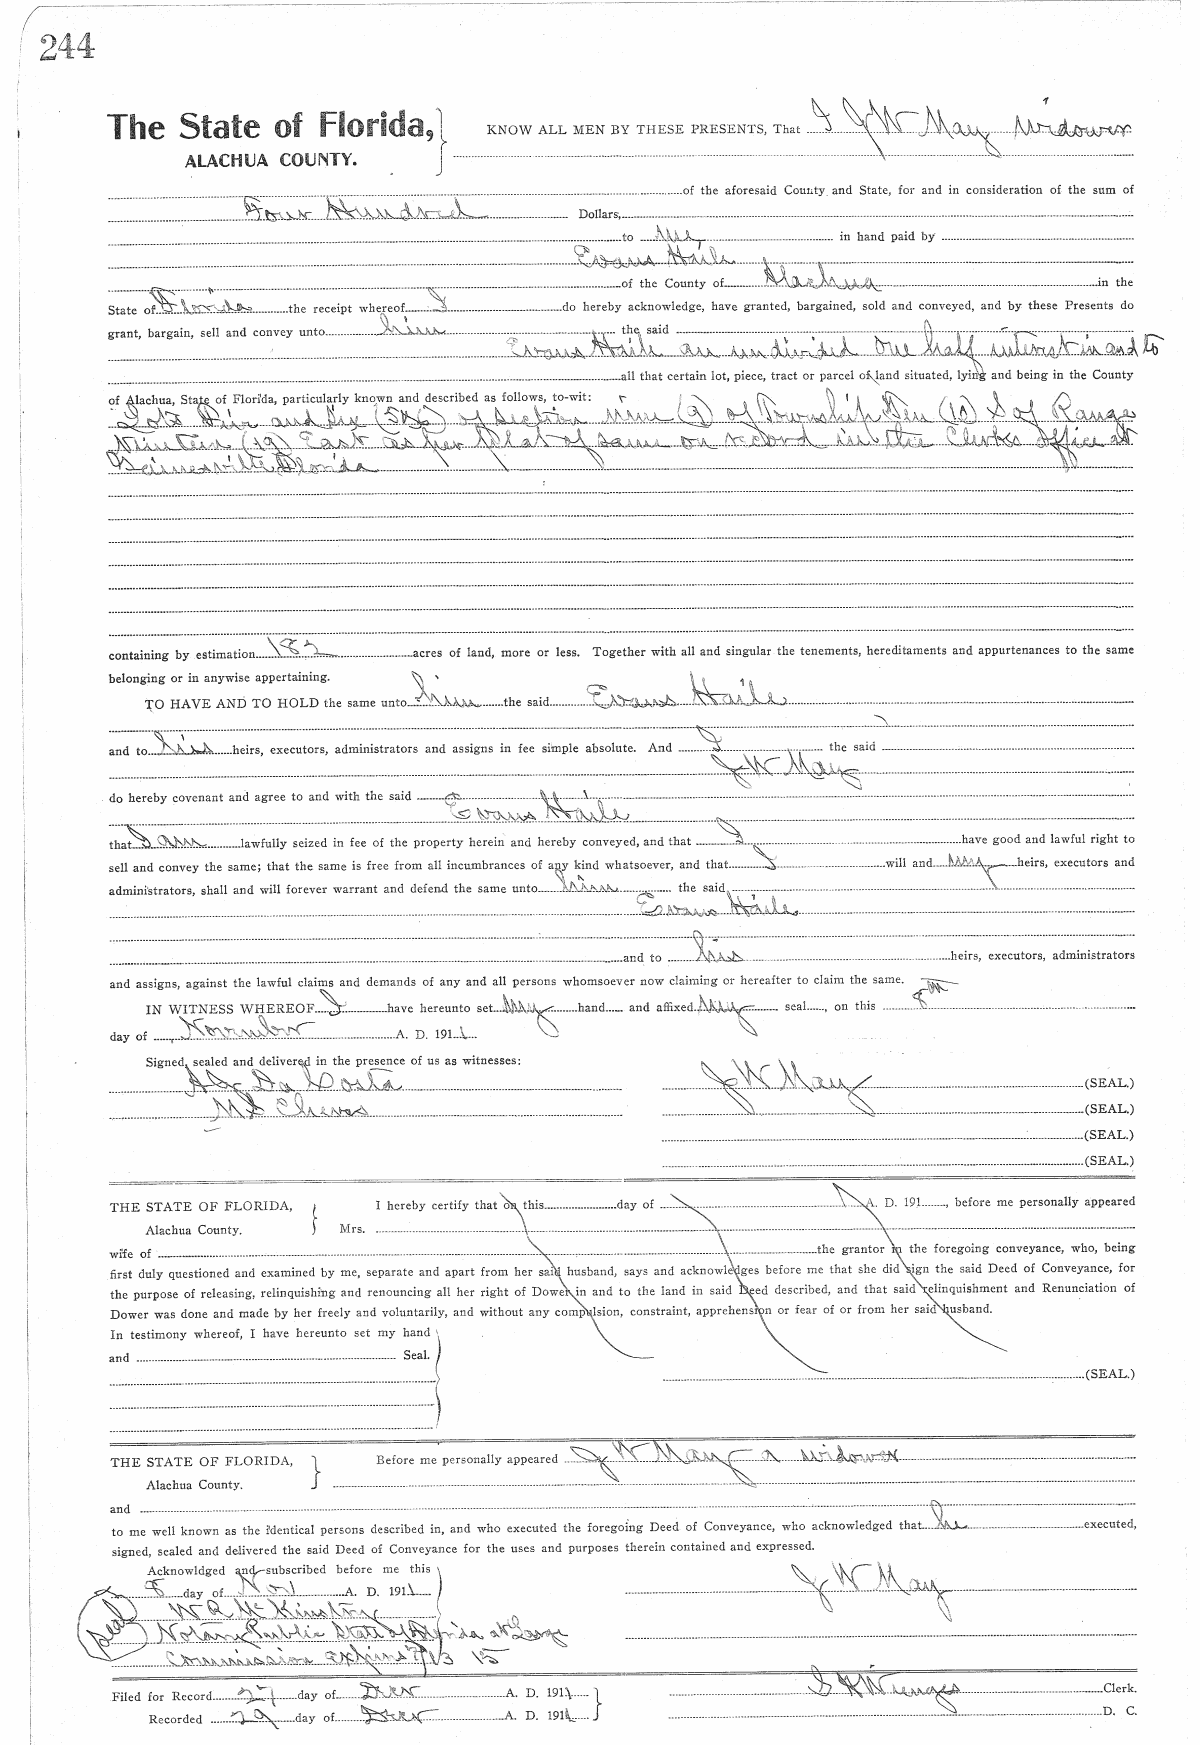 244
The State of Florida, KNOW ALL MEN BY THESE PRESENTS, That I J W May widower
ALACHUA COUNTY.
of the aforesaid County and State, for and in consideration of the sum of
Four Hundred Dollars,
to me in hand paid by
Evans Haile
of the County of Alachua in the
State of Florida the receipt whereof I do hereby acknowledge, have granted, bargained, sold and conveyed, and by these Presents do
grant, bargain, sell and convey unto him the said
Evans Haile an undivided one half interest in and to
all that certain lot, piece, tract or parcel of land situated, lying and being in the County
of Alachua, State of Florida, particularly known and described as follows, to-wit:
Lots Five and Six (5&6) of Section Nine (9) of Township Ten (10) S of Range
Ninteen (19) East as per plat of same on record in the Clerks office at
Gainesville Florida
containing by estimation 182 acres of land, more or less. Together with all and singular the tenements, hereditaments and appurtenances to the same
belonging or in anywise appertaining.
TO HAVE AND TO HOLD the same unto him the said Evans Haile
and to his heirs, executors, administrators and assigns in fee simple absolute. And I the said
J W May
do hereby covenant and agree to and with the said
Evans Haile
that I am lawfully seized in fee of the property herein and hereby conveyed, and that I have good and lawful right to
sell and convey the same; that the same is free from all incumbrances of any kind whatsoever, and that I will and my heirs, executors and
administrators, shall and will forever warrant and defend the same unto him the said
Evans Haile
and to his heirs, executors, administrators
and assigns, against the lawful claims and demands of any and all persons whomsoever now claiming or hereafter to claim the same.
IN WITNESS WHEREOF I have hereunto set my hand and affixed my seal, on this 8th
day of November A. D. 1911
Signed, sealed and delivered in the presence of us as witnesses:
Da Costa J W May (SEAL.)
Cheves (SEAL.)
(SEAL.)
(SEAL.)
THE STATE OF FLORIDA, I hereby certify that on this day of A. D. 191 , before me personally appeared
Alachua County. Mrs.
wife of the grantor in the foregoing conveyance, who, being
first duly questioned and examined by me, separate and apart from her said husband, says and acknowledges before me that she did sign the said Deed of Conveyance, for
the purpose of releasing, relinquishing and renouncing all her right of Dower in and to the land in said Deed described, and that said relinquishment and Renunciation of
Dower was done and made by her freely and voluntarily, and without any compulsion, constraint, apprehension or fear of or from her said husband.
In testimony whereof, I have hereunto set my hand
and Seal.
(SEAL.)
THE STATE OF FLORIDA, Before me personally appeared J W May a widower
Alachua County.
and
to me well known as the identical persons described in, and who executed the foregoing Deed of Conveyance, who acknowledged that he executed,
signed, sealed and delivered the said Deed of Conveyance for the uses and purposes therein contained and expressed.
Acknowldged and subscribed before me this
8 day of Nov A. D. 1911 J W May
W R McKinstry
seal Notary Public State of Florida at Large
Commission expires 7/13 15
Filed for Record 27 day of Dec A. D. 1911 S H Wienges Clerk.
Recorded 29 day of Dec A. D. 1911 D. C.